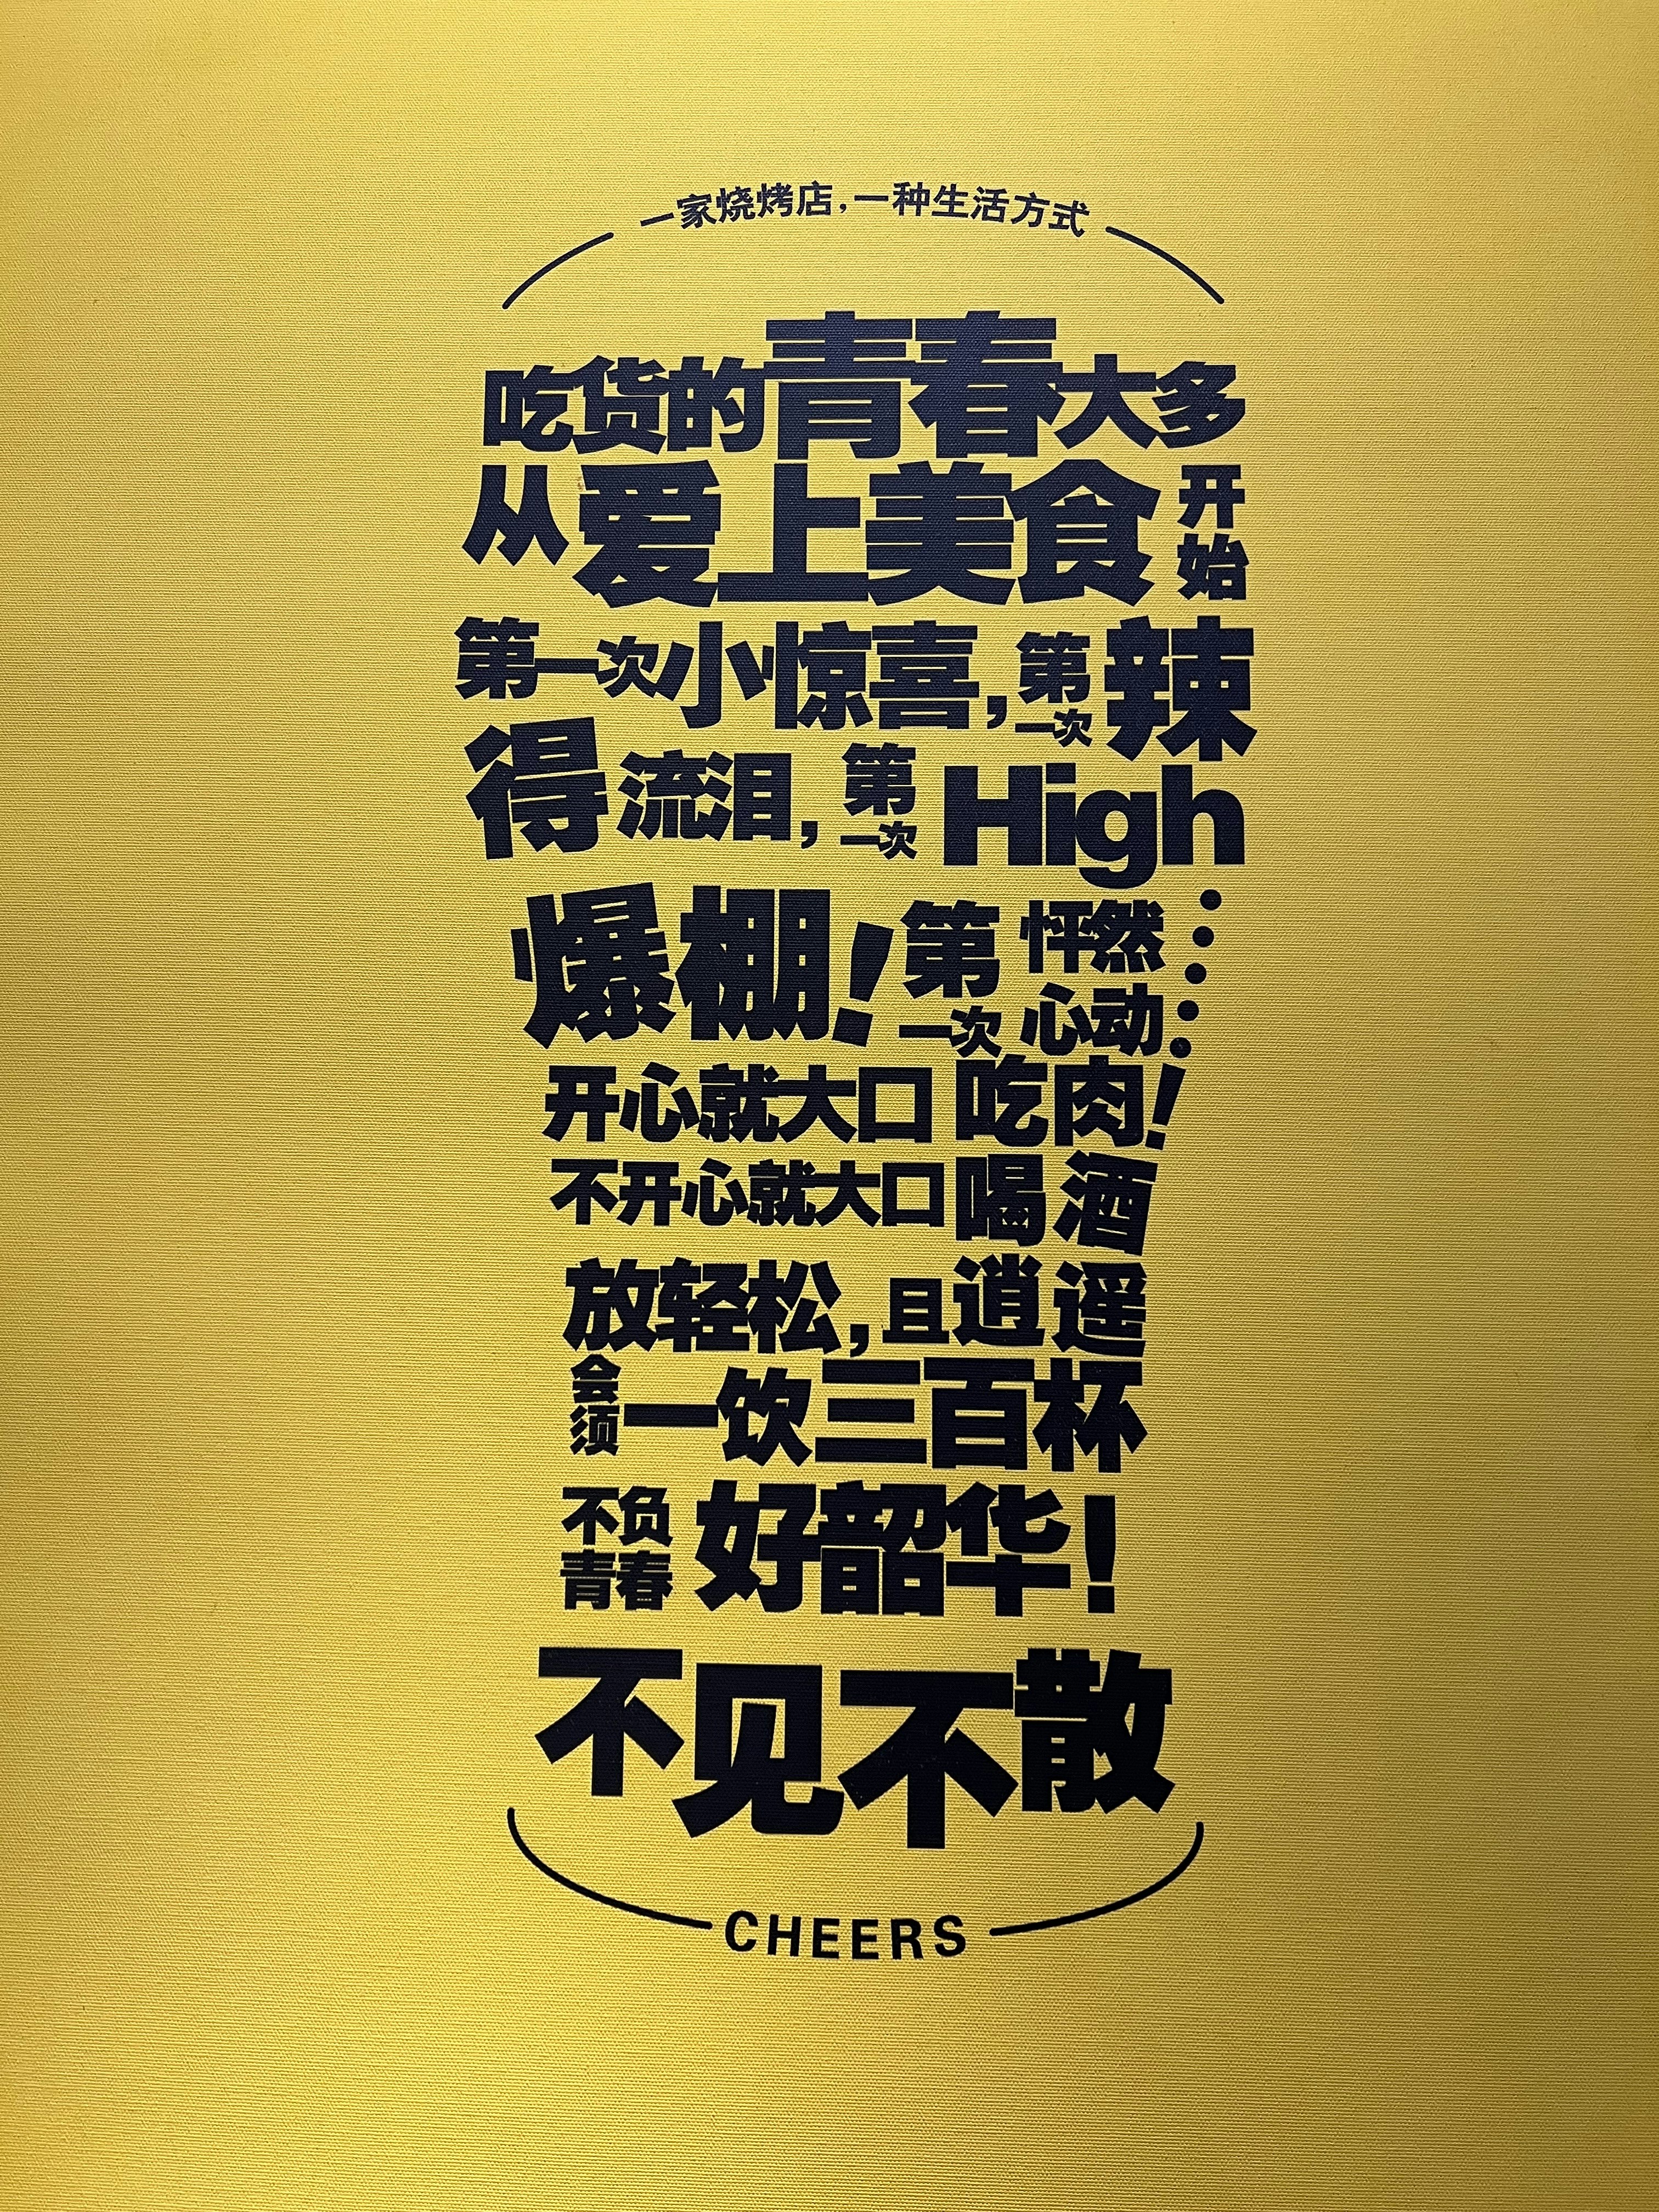 一家烧烤店,一种生活方式
吃货的青春大多
从爱上美食开始
第一次小惊喜,第一次辣
得流泪,第一次High
爆棚!第一次怦然心动……
开心就大口吃肉!
不开心就大口喝酒
放轻松,且逍遥
会须一饮三百杯
不负青春好韶华!
不见不散
CHEERS